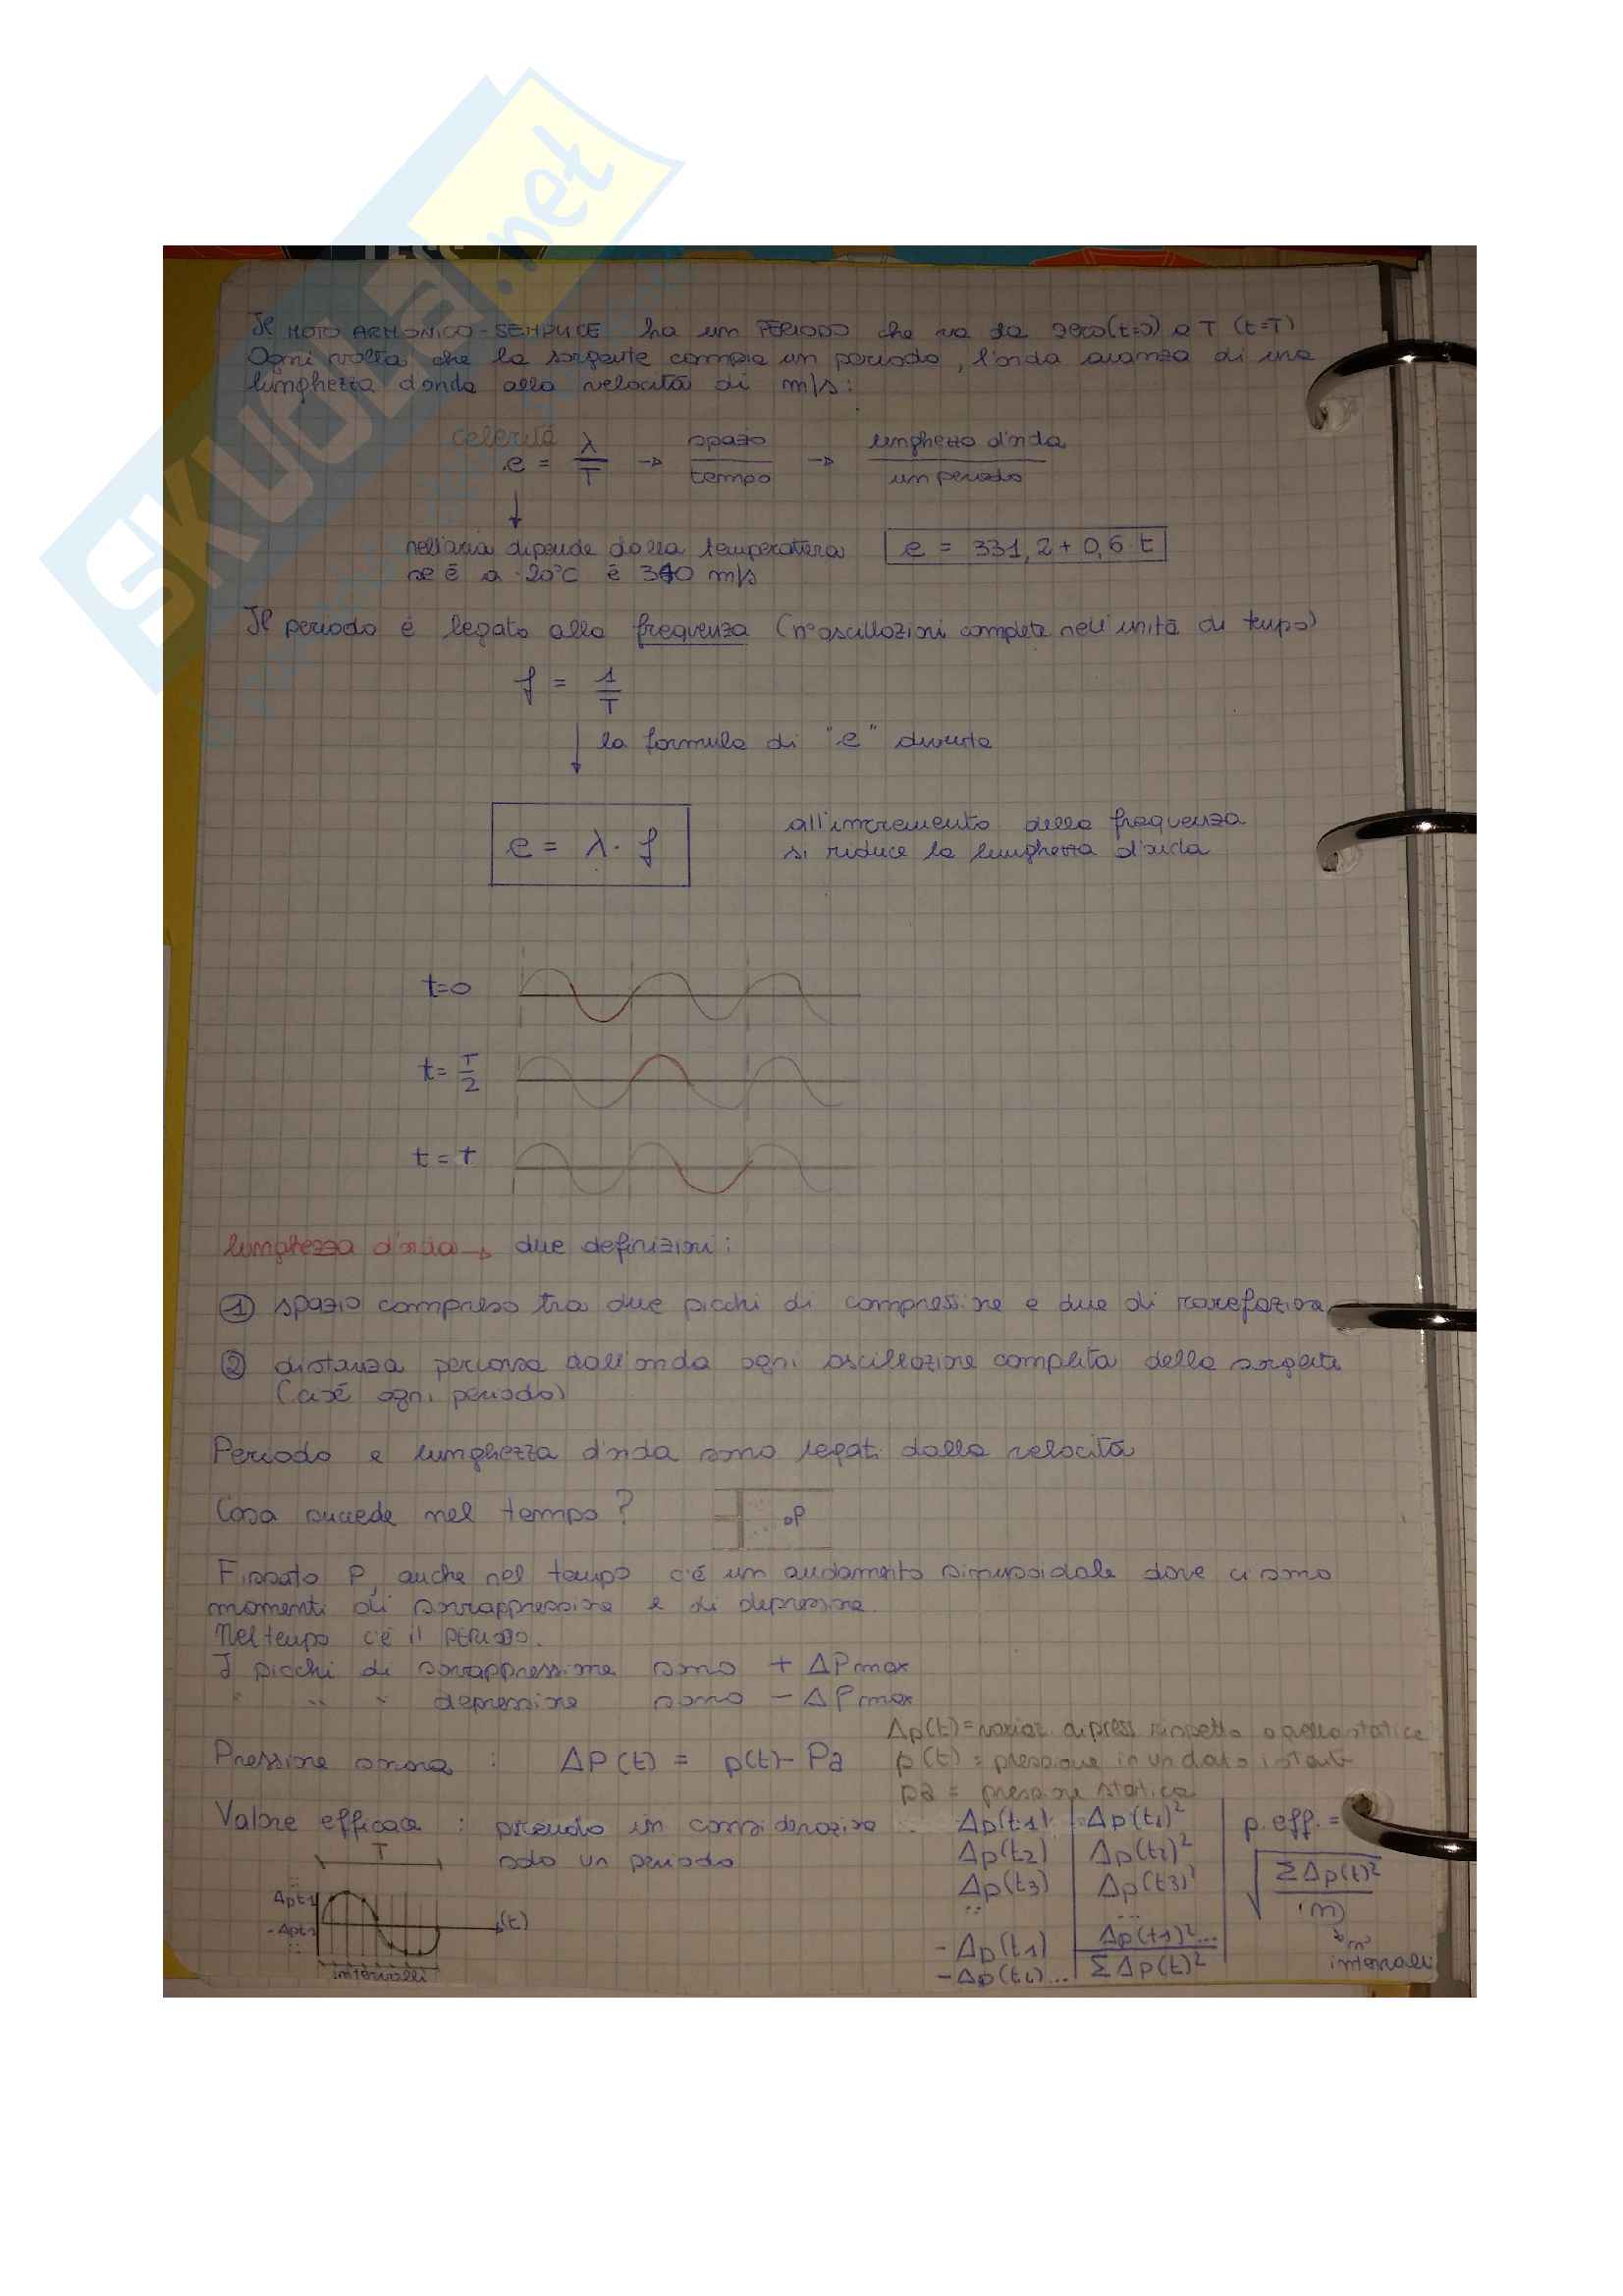 SKUOLA.net
Il MOTO ARMONICO-SEMPLICE ha un PERIODO che va da zero(t=0) a T (t=T)
Ogni volta che la sorgente compie un periodo, l'onda avanza di una
lunghezza d'onda alla velocità di m/s:
celerità
c = λ/T → spazio/tempo → lunghezza d'onda/un periodo
nell'aria dipende dalla temperatura c = 331,2 + 0,6 · t
se è a 20°C è 340 m/s
Il periodo è legato alla frequenza (n° oscillazioni complete nell'unità di tempo)
f = 1/T
la formula di "c" diventa
c = λ · f
all'incremento della frequenza
si riduce la lunghezza d'onda
t=0
t= T/2
t = T
lunghezza d'onda → due definizioni:
① spazio compreso tra due picchi di compressione e due di rarefazione
② distanza percorsa dall'onda ogni oscillazione completa della sorgente
(cioè ogni periodo)
Periodo e lunghezza d'onda sono legati dalla velocità
Cosa succede nel tempo? P
Fissato P, anche nel tempo c'è un andamento sinusoidale dove ci sono
momenti di sovrappressione e di depressione.
Nel tempo c'è il PERIODO.
I picchi di sovrappressione sono + ΔPmax
" " " depressione sono - ΔPmax
Δp(t) = variaz. di press. rispetto a quella statica
Pressione sonora : ΔP(t) = p(t) - Pa
p(t) = pressione in un dato istante
pa = pressione statica
Valore efficace : prendo in considerazione
solo un periodo
T
Δpt1
-Δpt1
(t)
intervalli
Δp(t1) Δp(t1)²
Δp(t2) Δp(t2)²
Δp(t3) Δp(t3)²
-Δp(t1) Δp(t1)²...
-Δp(t2)... ΣΔp(t)²
p. eff. =
√ ΣΔp(t)²/n
n°
intervalli